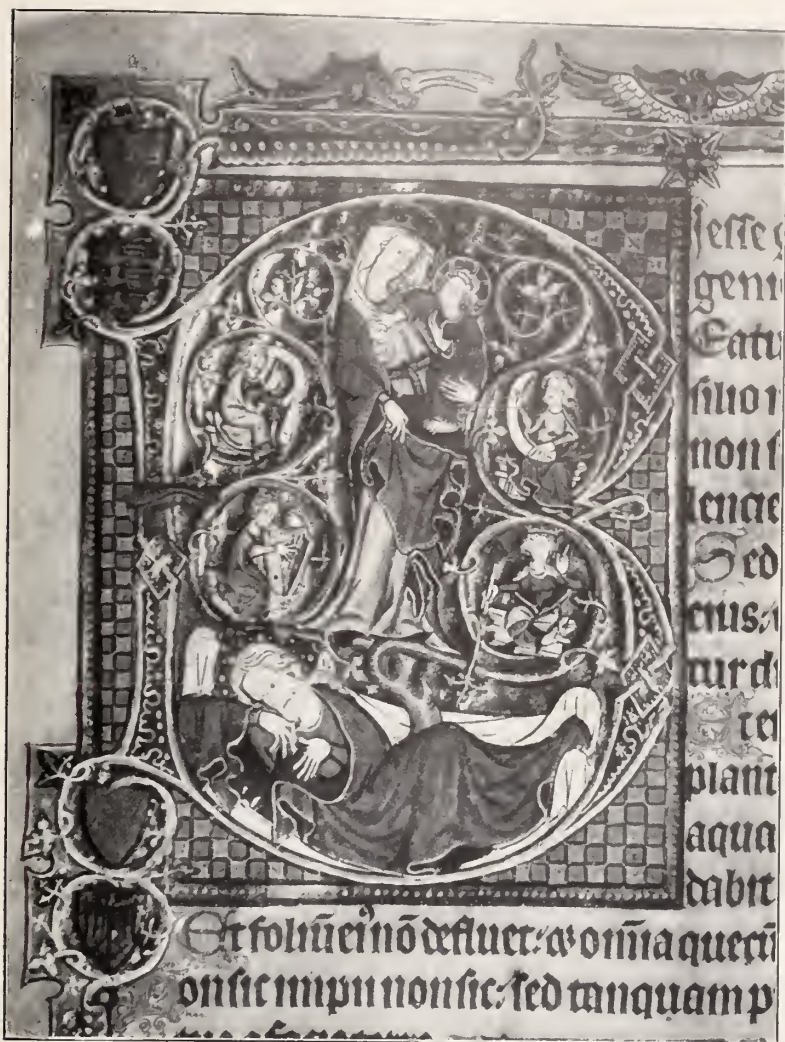 jesse g
geni
Eatu
silio i
non s
lencie
Sed
eius:
tur di
t er
plant
aqua
dabit
Et foliū eiꝰ nō defluet: ⁊ om̄ia quecū
on sic impii non sic: sed tanquam p